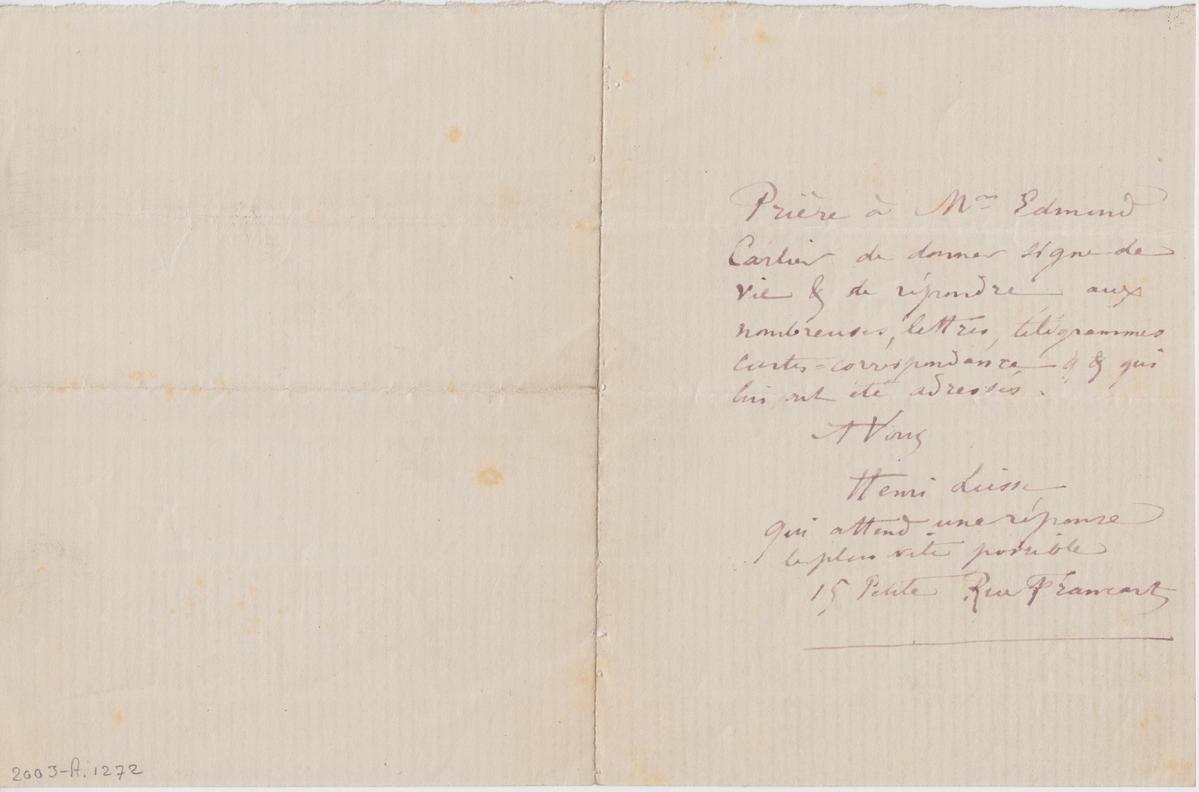 Prière à Mr Edmond
Carlier de donner signe de
vie & de répondre aux
nombreuses, lettres, télégrammes
cartes=correspondance & qui
lui ont été adressés.
A Vous
Henri
qui attend une réponse
le plus vite possible
15 Petite Rue
2003-A.1272